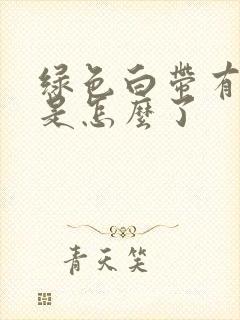 綠色白帶有
是怎麼了
青天笑